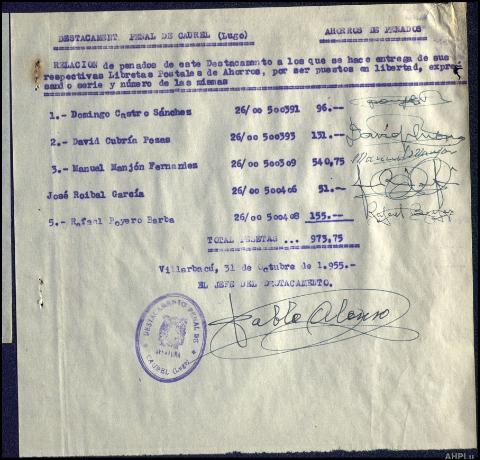 DESTACAMENTO PENAL DE CAUREL (Lugo) AHORROS DE PENADOS
RELACION de penados de este Destacamento a los que se hace entrega de sus
respectivas Libretas Postales de Ahorros, por ser puestos en libertad, expre
sando serie y número de las mismas
1.- Domingo Castro Sánchez 26/00 500391 96.--
2.- David Cubrín Pezas 26/00 500393 131.--
3.- Manuel Manjón Fernandez 26/00 500309 540,75
José Roibal García 26/00 500406 51.--
5.- Rafael Boyero Barba 26/00 500408 155.--
TOTAL PESETAS ... 973,75
Villarbacú, 31 de octubre de 1.955.-
EL JEFE DEL DESTACAMENTO.
Pablo Alonso
DESTACAMENTO PENAL DE
CAUREL (Lugo)
AHPLu